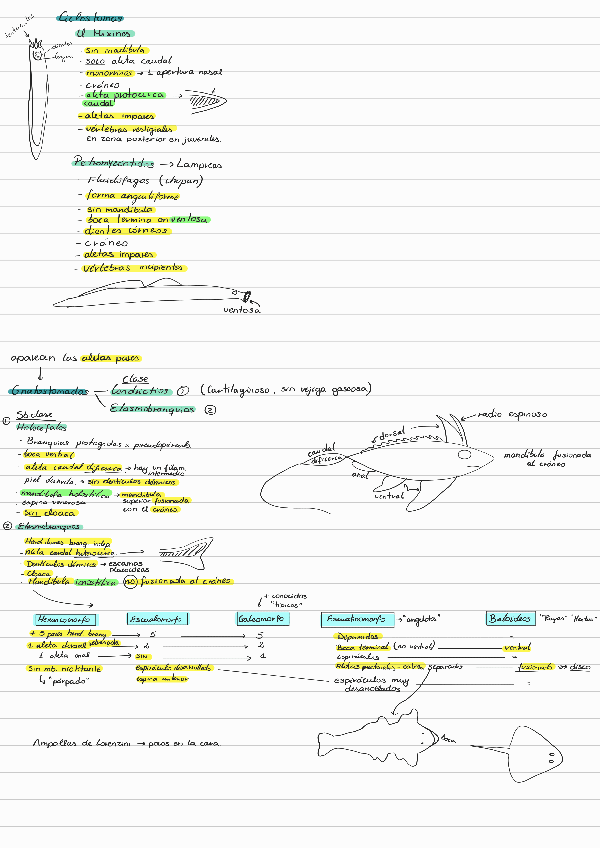 Ciclostomas
Mixinos
- sin mandíbula
- solo aleta caudal
- monorrinos → 1 apertura nasal
- cráneo
- aleta protocerca
caudal
- aletas impares
- vértebras vestigiales
En zona posterior en juveniles.
Petromyzontidos → Lampreas
Fluidófagos (chupan)
- forma anguiliforme
- sin mandíbula
- boca termina en ventosa
- dientes córneos
- cráneo
- aletas impares
- vértebras incipientes
ventosa
aparecen las aletas pares
Clase
Gnatostomados
Condrictios ① (Cartilaginoso, sin vejiga gaseosa)
Elasmobranquios ②
① Sbclase
Holocéfalos
- Branquias protegidas x pseudopérculo
- boca ventral
- aleta caudal dificerca → hay un filam.
intermedio
piel desnuda, → sin dentículos dérmicos
- mandíbula holostílica → mandíbula
espina venenosa superior fusionada
- sin cloaca con el cráneo
radio espinoso
dorsal
caudal
dificerca
anal
ventral
mandíbula fusionada
al cráneo
② Elasmobranquios
- Aleta caudal heterocerca →
- Dentículos dérmicos → escamas
placoideas
- Cloaca
- Mandíbula no fusionada al cráneo
+ conocidos
"típicos"
Hexancomorfo Escualomorfo Galeomorfo Escuatinomorfo → "angelote" Batoideos "Rayas" "Mantas"
+ 5 pares hend. branq → 5 5 Deprimidos "
1 aleta dorsal → 2 2 Boca terminal (no ventral) ventral
1 aleta anal → sin 1 Espiráculos "
Sin mb. nictitante espiráculo desarrollado Aletas pectorales - cabeza separadas fusionada → disco
↳ "párpado" espiráculos muy "
desarrollados
boca
Ampollas de Lorenzini → poros en la cara